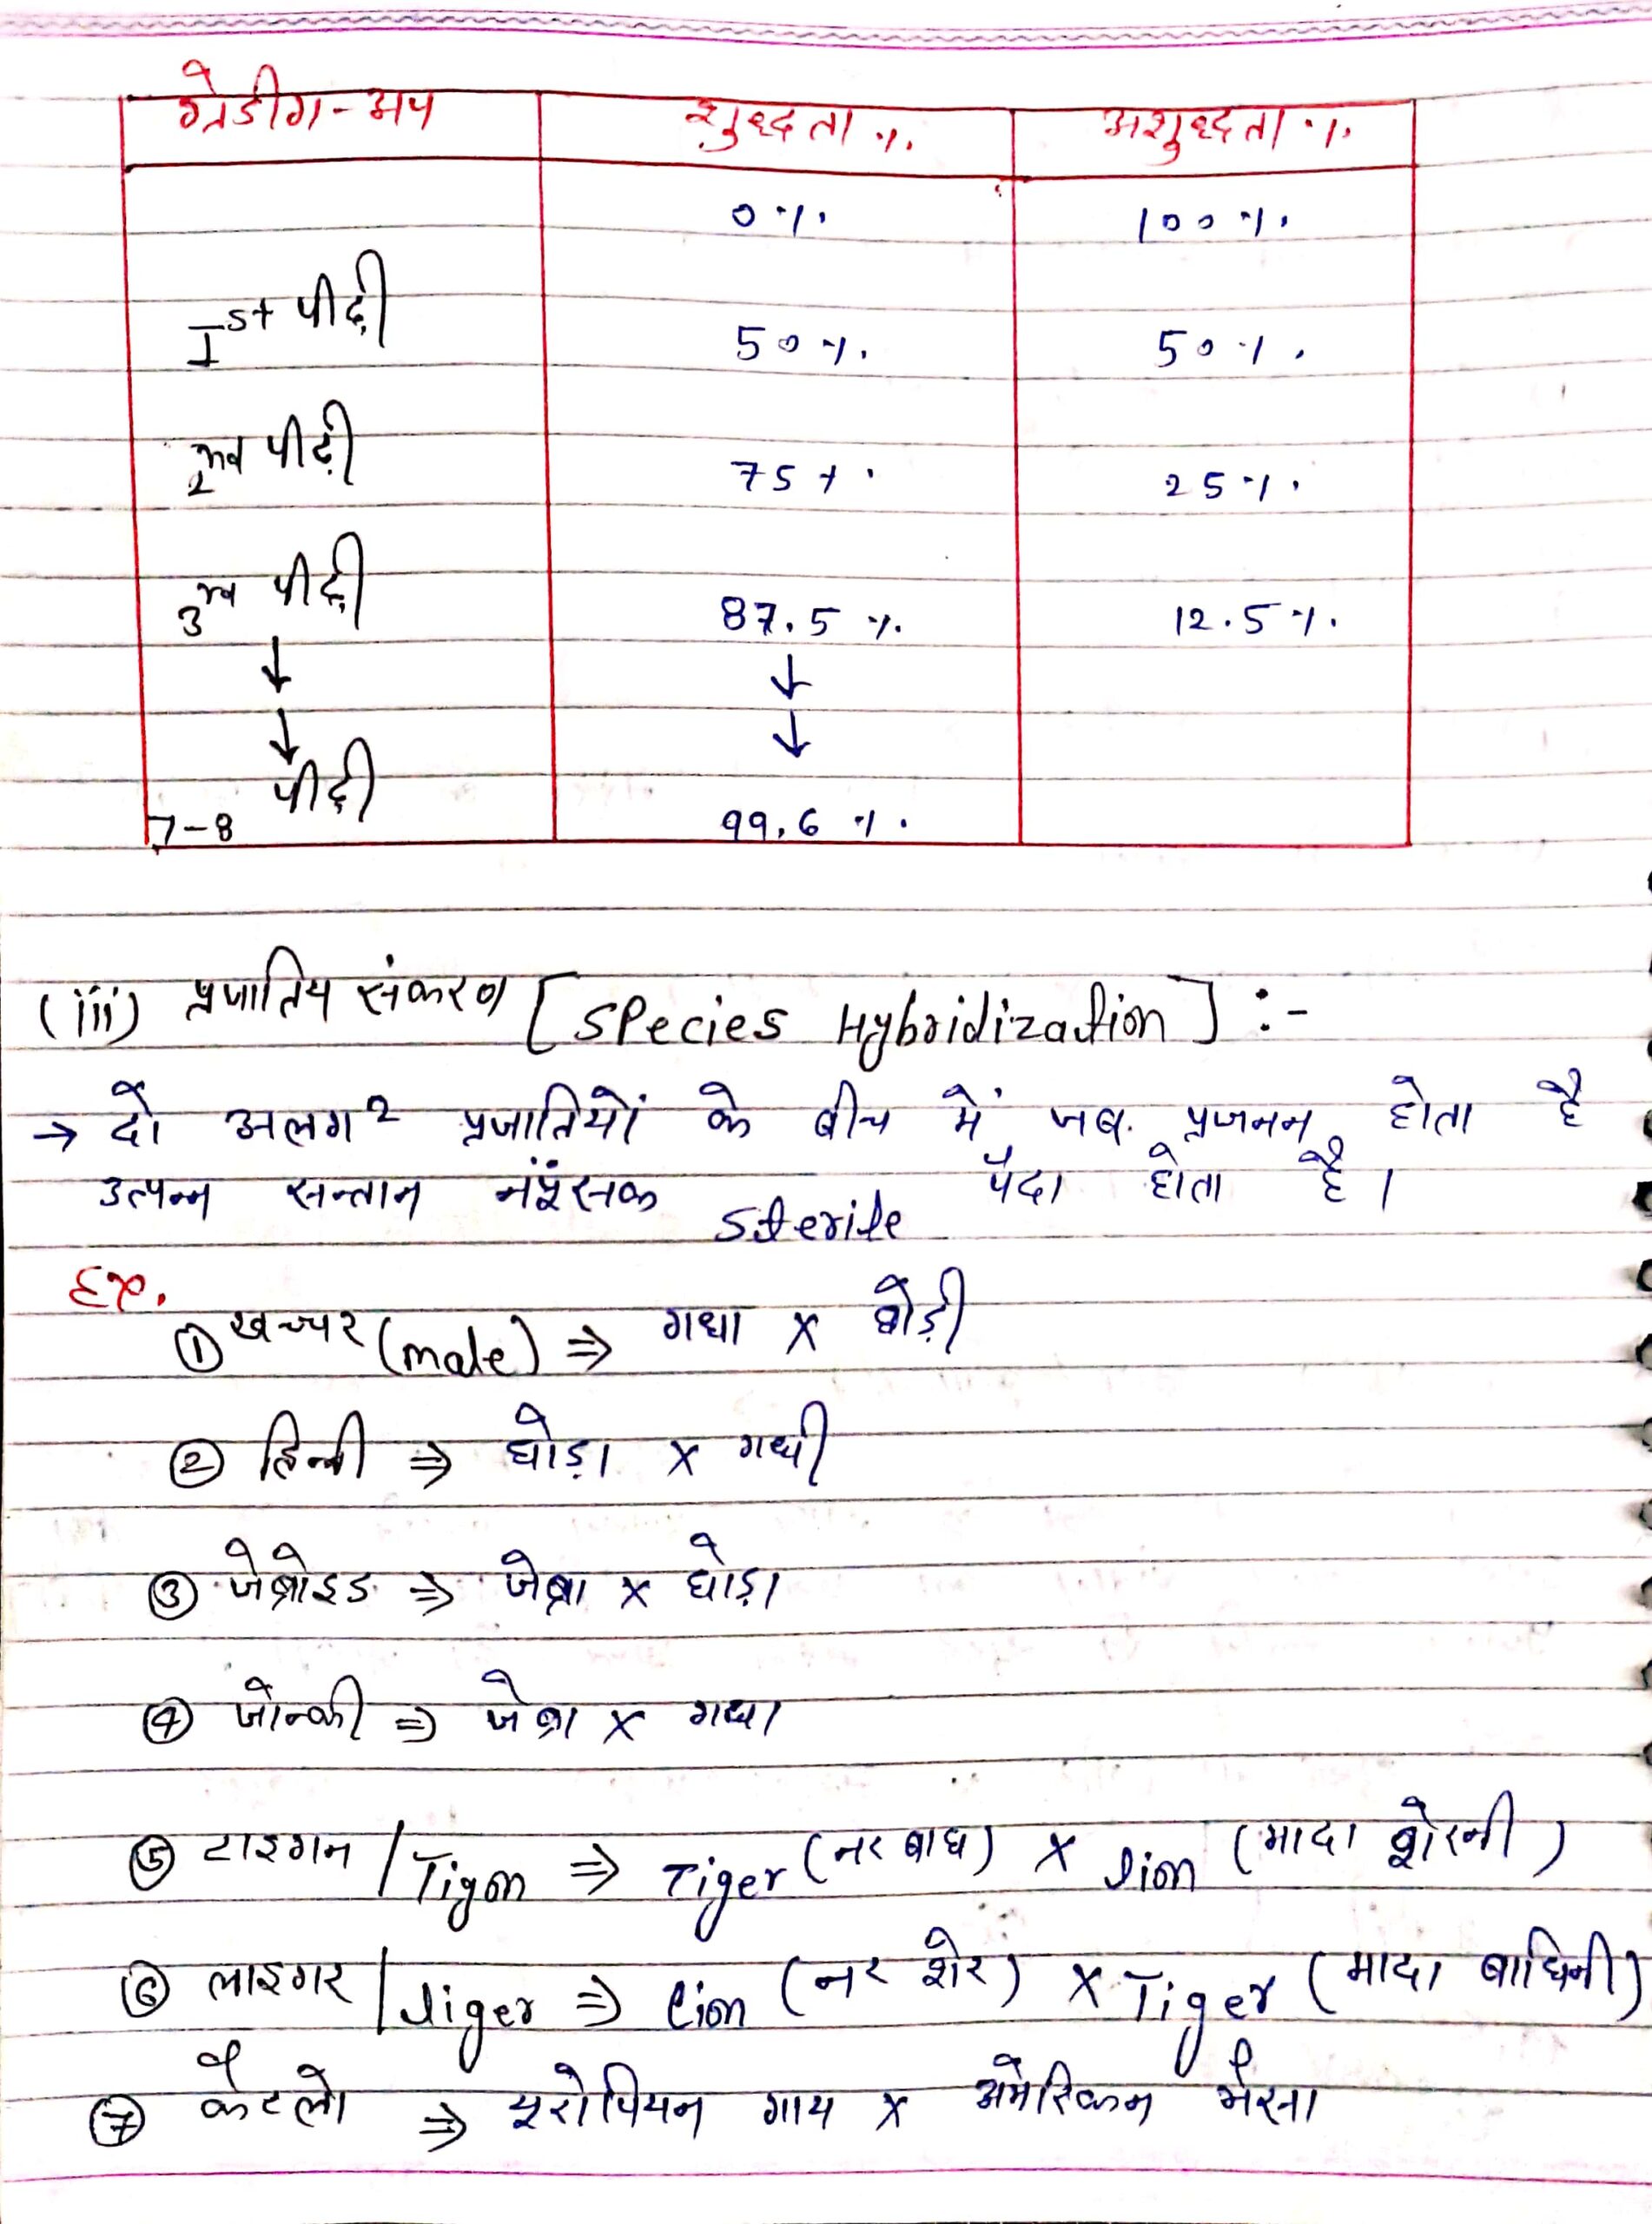 ग्रेडींग-अप शुद्धता % अशुद्धता %
0% 100%
Ist पीढ़ी 50% 50%
2nd पीढ़ी 75% 25%
3rd पीढ़ी 87.5% 12.5%
↓ ↓
↓ ↓
7-8 पीढ़ी 99.6%
(iii) प्रजातिय संकरण [Species Hybridization] :-
→ दो अलग2 प्रजातियों के बीच में जब प्रजनन होता है
उत्पन्न सन्तान नपुंसक Sterile पैदा होता है।
Ex.
① खच्चर (male) ⇒ गधा x घोड़ी
② हिन्नी ⇒ घोड़ा x गधी
③ जेब्रोइड ⇒ जेब्रा x घोड़ा
④ जोन्की ⇒ जेब्रा x गधा
⑤ टाइगन / Tigon ⇒ Tiger (नर बाघ) x lion (मादा शेरनी)
⑥ लाइगर / liger ⇒ lion (नर शेर) x Tiger (मादा बाघिनी)
⑦ कैटलो ⇒ यूरोपियन गाय x अमेरिकन भैंसा